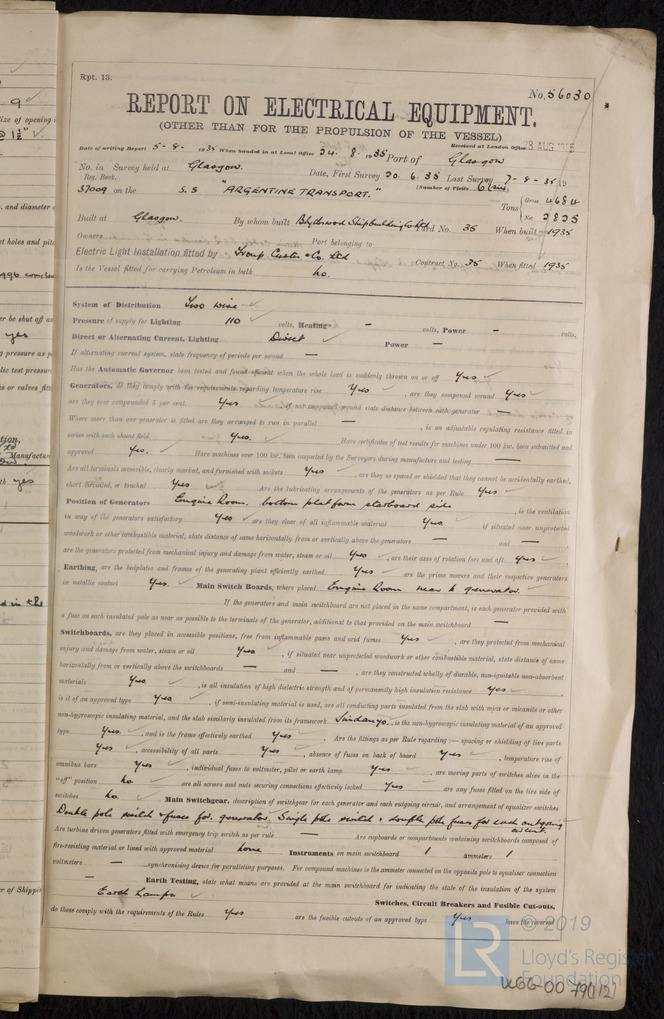 Rpt. 13.
No. 56030
REPORT ON ELECTRICAL EQUIPMENT.
(OTHER THAN FOR THE PROPULSION OF THE VESSEL)
Received at London Office 28 AUG 1935
Date of writing Report 5-8-1935 When handed in at Local Office 24.8.1935 Port of Glasgow
No. in Survey held at Glasgow. Date, First Survey 20.6.35 Last Survey 7-8-35 19
Reg. Book. (Number of Visits 6
37009 on the S.S "ARGENTINE TRANSPORT."
Tons Gross 4684
Net 2835
Built at Glasgow. By whom built Blythswood Shipbuilding Co Ltd Yard No. 35 When built 1935
Owners Port belonging to
Electric Light Installation fitted by & Co. Ltd Contract No. 35 When fitted 1935
Is the Vessel fitted for carrying Petroleum in bulk No.
System of Distribution Two wire ✓
Pressure of supply for Lighting 110 volts, Heating - volts, Power - volts.
Direct or Alternating Current, Lighting Direct ✓ Power —
If alternating current system, state frequency of periods per second —
Has the Automatic Governor been tested and found efficient when the whole load is suddenly thrown on or off Yes ✓
Generators, do they comply with the requirements regarding temperature rise Yes ✓, are they compound wound Yes ✓
are they over compounded 5 per cent. Yes ✓, if not compound wound state distance between each generator —
Where more than one generator is fitted are they arranged to run in parallel —, is an adjustable regulating resistance fitted in
series with each shunt field Yes. ✓ Have certificates of test results for machines under 100 kw. been submitted and
approved Yes. ✓ Have machines over 100 kw. been inspected by the Surveyors during manufacture and testing —
Are all terminals accessible, clearly marked, and furnished with sockets Yes ✓, are they so spaced or shielded that they cannot be accidentally earthed,
short circuited, or touched Yes ✓ Are the lubricating arrangements of the generators as per Rule Yes ✓
Position of Generators Engine Room, bottom platform starboard side, is the ventilation
in way of the generators satisfactory Yes ✓ are they clear of all inflammable material Yes ✓ if situated near unprotected
woodwork or other combustible material, state distance of same horizontally from or vertically above the generators — and —,
are the generators protected from mechanical injury and damage from water, steam or oil Yes ✓, are their axes of rotation fore and aft Yes ✓
Earthing, are the bedplates and frames of the generating plant efficiently earthed Yes ✓ are the prime movers and their respective generators
in metallic contact Yes. ✓ Main Switch Boards, where placed Engine Room near to generator. ✓
If the generators and main switchboard are not placed in the same compartment, is each generator provided with
a fuse on each insulated pole as near as possible to the terminals of the generator, additional to that provided on the main switchboard —
Switchboards, are they placed in accessible positions, free from inflammable gases and acid fumes Yes ✓, are they protected from mechanical
injury and damage from water, steam or oil Yes ✓, if situated near unprotected woodwork or other combustible material, state distance of same
horizontally from or vertically above the switchboards — and —, are they constructed wholly of durable, non-ignitable non-absorbent
materials Yes ✓, is all insulation of high dielectric strength and of permanently high insulation resistance Yes ✓,
is it of an approved type Yes ✓, if semi-insulating material is used, are all conducting parts insulated from the slab with mica or micanite or other
non-hygroscopic insulating material, and the slab similarly insulated from its framework Sindanyo., is the non-hygroscopic insulating material of an approved
type Yes. ✓, and is the frame effectively earthed Yes ✓ Are the fittings as per Rule regarding:— spacing or shielding of live parts
Yes ✓, accessibility of all parts Yes ✓, absence of fuses on back of board Yes ✓, temperature rise of
omnibus bars Yes ✓, individual fuses to voltmeter, pilot or earth lamp Yes ✓, are moving parts of switches alive in the
"off" position No ✓ are all screws and nuts securing connections effectively locked Yes ✓ are any fuses fitted on the live side of
switches No. ✓ Main Switchgear, description of switchgear for each generator and each outgoing circuit, and arrangement of equalizer switches
Double pole switch & fuses for generator, Single pole switch & double pole fuses for each outgoing
circuit.
Are turbine driven generators fitted with emergency trip switch as per rule — Are cupboards or compartments containing switchboards composed of
fire-resisting material or lined with approved material none Instruments on main switchboard 1 ammeters 1
voltmeters — synchronising device for paralleling purposes. For compound machines is the ammeter connected on the opposite pole to equaliser connection
— Earth Testing, state what means are provided at the main switchboard for indicating the state of the insulation of the system
Earth Lamps ✓ Switches, Circuit Breakers and Fusible Cut-outs,
do these comply with the requirements of the Rules Yes ✓ are the fusible cutouts of an approved type Yes ✓ have the reversed
© 2019
LR Lloyd's Register
Foundation